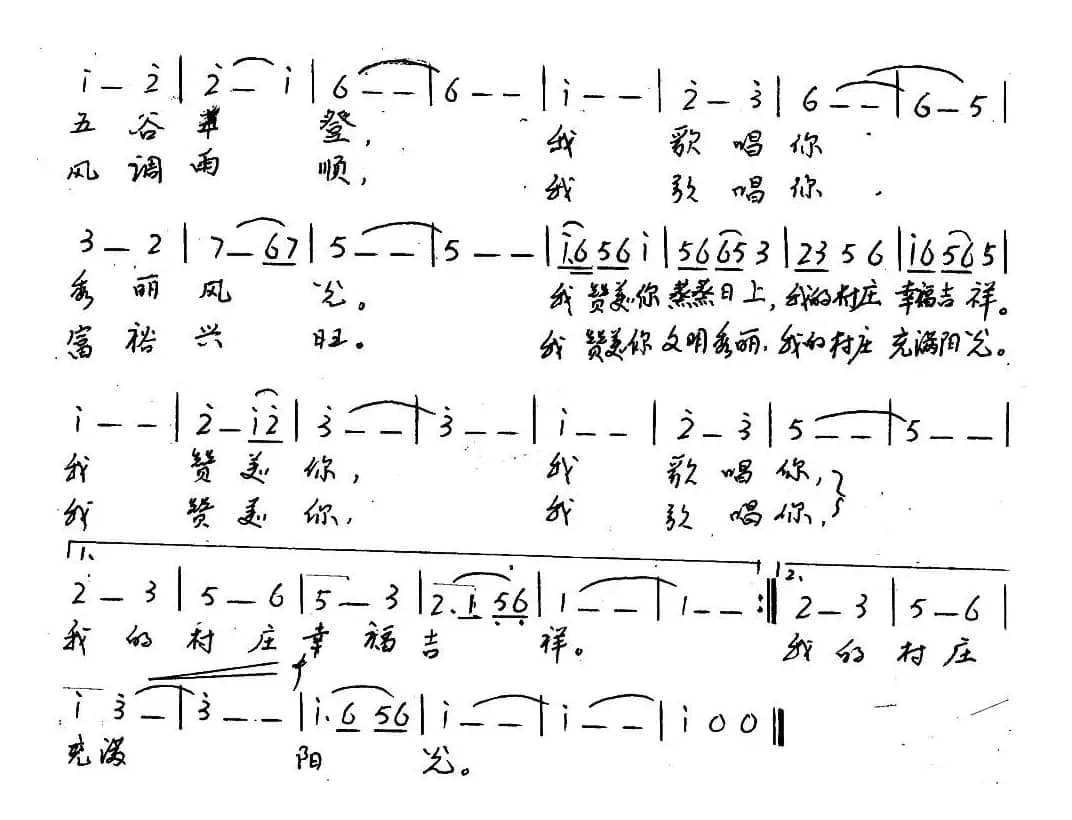 i – 2̇ | 2̇ – i | 6 – – | 6 – – | i – – | 2̇ – 3̇ | 6 – – | 6 – 5 |
五 谷 丰 登, 我 歌 唱 你
风 调 雨 顺, 我 歌 唱 你 .
3 – 2 | 7 – 67 | 5 – – | 5 – – | i.656 i | 5665 3 | 23 5 6 | i656 5 |
秀 丽 风 光。 我 赞美你 蒸蒸日上, 我的村庄 幸福吉祥。
富 裕 兴 旺。 我 赞美你 文明秀丽, 我的村庄 充满阳光。
i – – | 2̇ – i2̇ | 3̇ – – | 3̇ – – | i – – | 2̇ – 3̇ | 5 – – | 5 – – |
我 赞 美 你, 我 歌 唱 你,
我 赞 美 你, 我 歌 唱 你,
1. 2.
2 – 3 | 5 – 6 | 5 – 3 | 2. 1 56 | 1 – – | 1 – – :‖ 2 – 3 | 5 – 6 |
我 的 村 庄 幸 福 吉 祥。 我 的 村 庄
f
i 3̇ – | 3̇ – – | i. 6 56 | i – – | i – – | i 0 0 ‖
充 满 阳 光。